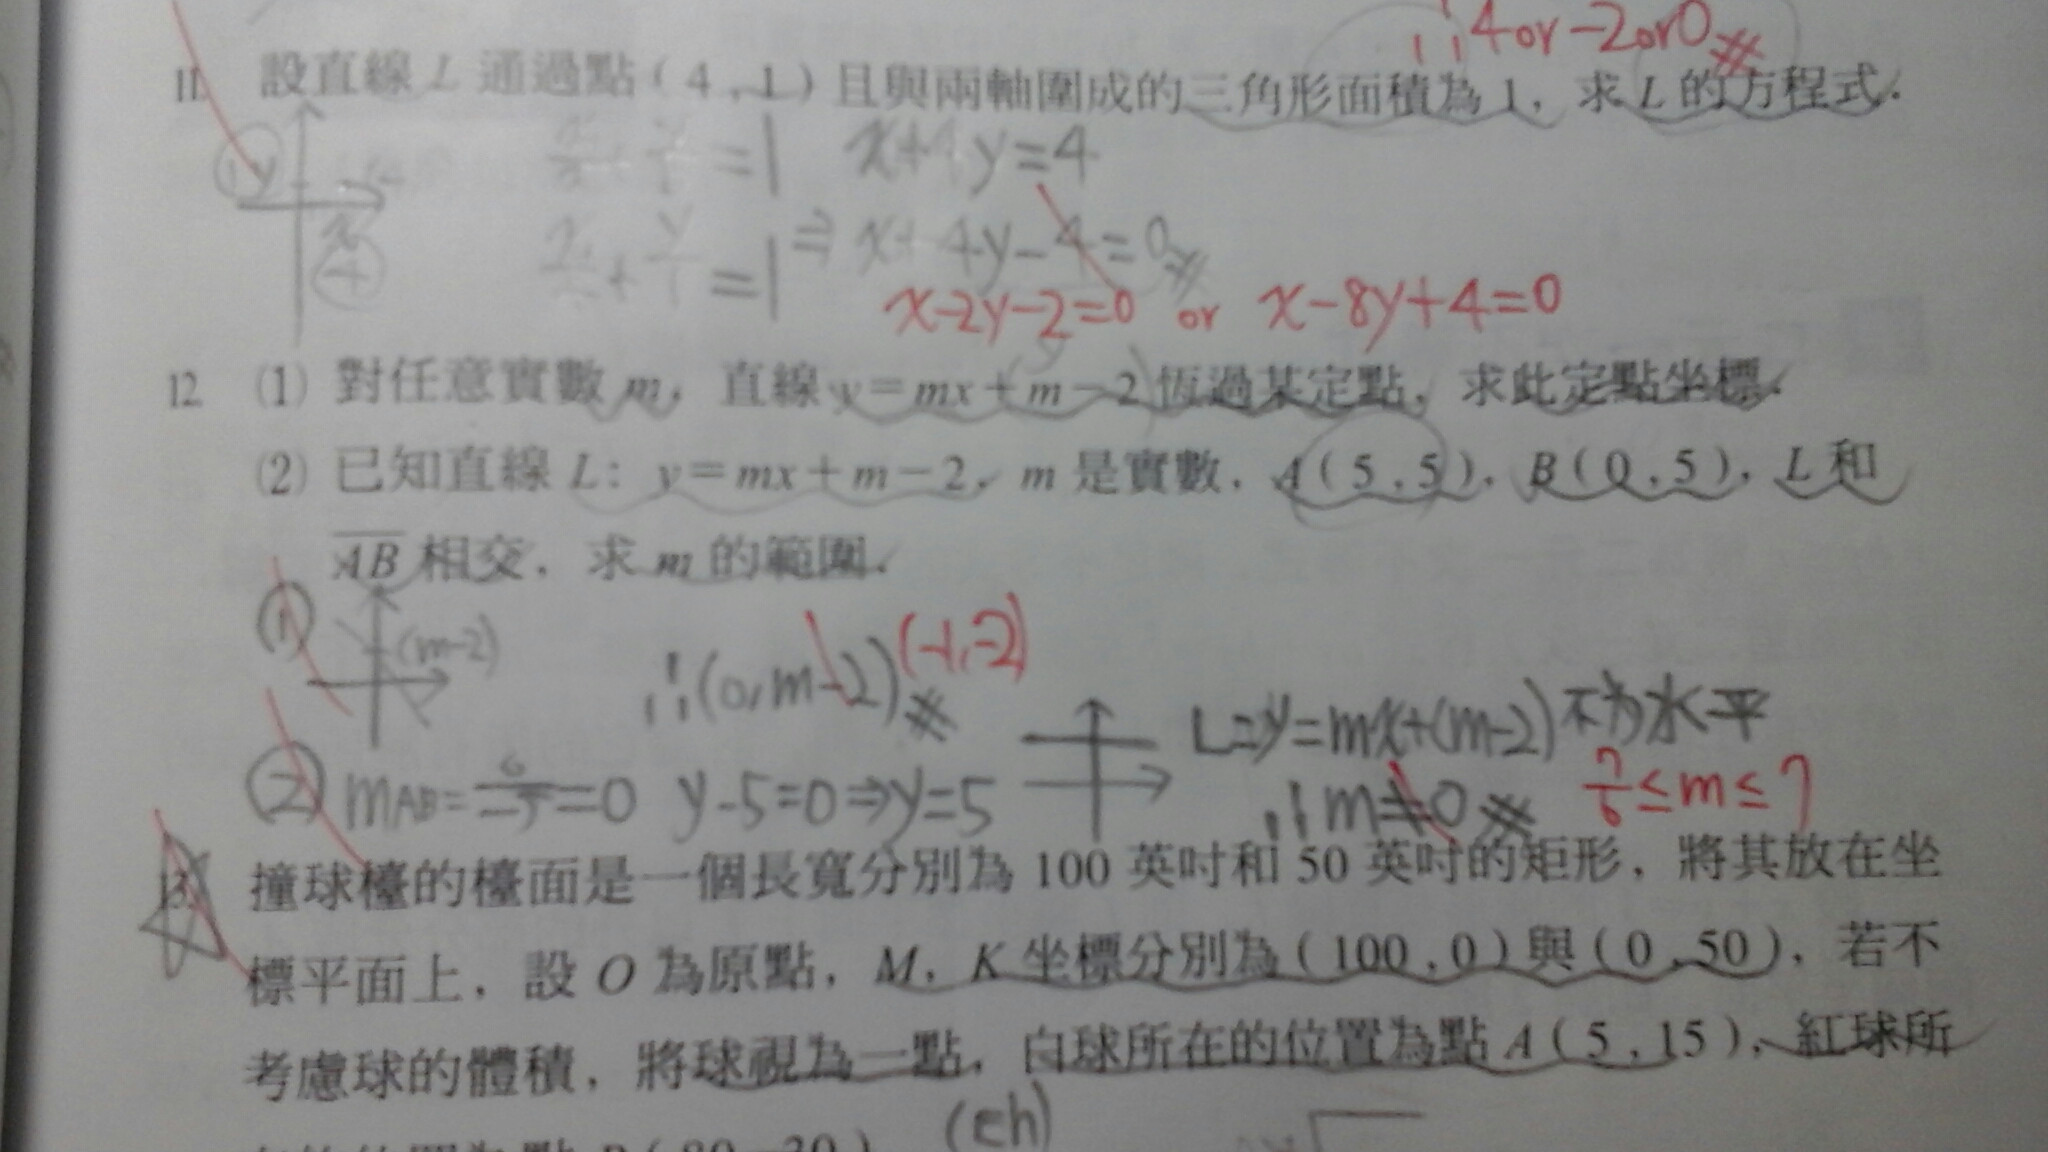 ∴4or-2or0
11 設直線 L 通過點 ( 4 , 1 ) 且與兩軸圍成的三角形面積為 1，求 L 的方程式．
=1 x+4y=4
x
4
=1 ⇒ x+4y-4=0
x-2y-2=0 or x-8y+4=0
12 (1) 對任意實數 m，直線 y=mx+m-2 恆過某定點，求此定點坐標．
(2) 已知直線 L：y=mx+m-2，m 是實數，A ( 5 , 5 )，B ( 0 , 5 )，L 和
AB 相交，求 m 的範圍．
① (m-2) ∴(0,m-2) (-1,-2)
L=y=mx+(m-2) 不為水平
② mAB= =0 y-5=0⇒y=5 ∴m≠0 7/6≤m≤7
13 撞球檯的檯面是一個長寬分別為 100 英吋和 50 英吋的矩形，將其放在坐
標平面上，設 O 為原點，M，K 坐標分別為 ( 100 , 0 ) 與 ( 0 , 50 )，若不
考慮球的體積，將球視為一點，白球所在的位置為點 A ( 5 , 15 )，紅球所
(eh)